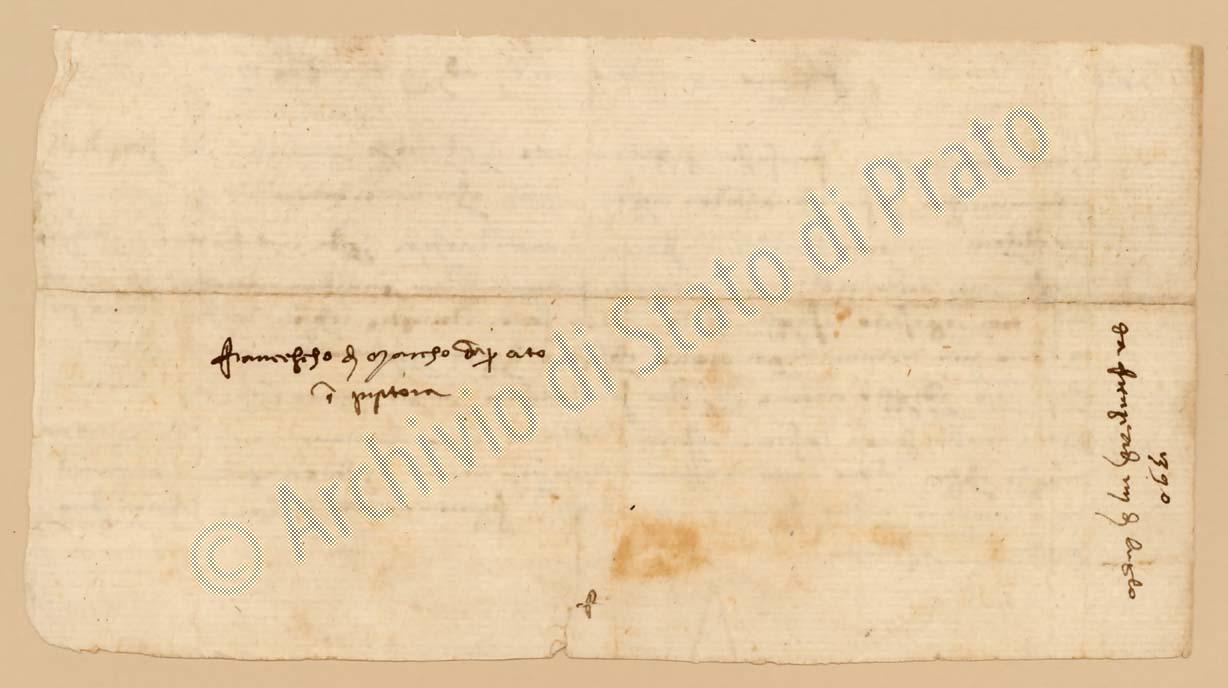 Francescho di Marcho da Prato
in Pistoia
1390
da Firenze a dì 4 di luglo
© Archivio di Stato di Prato